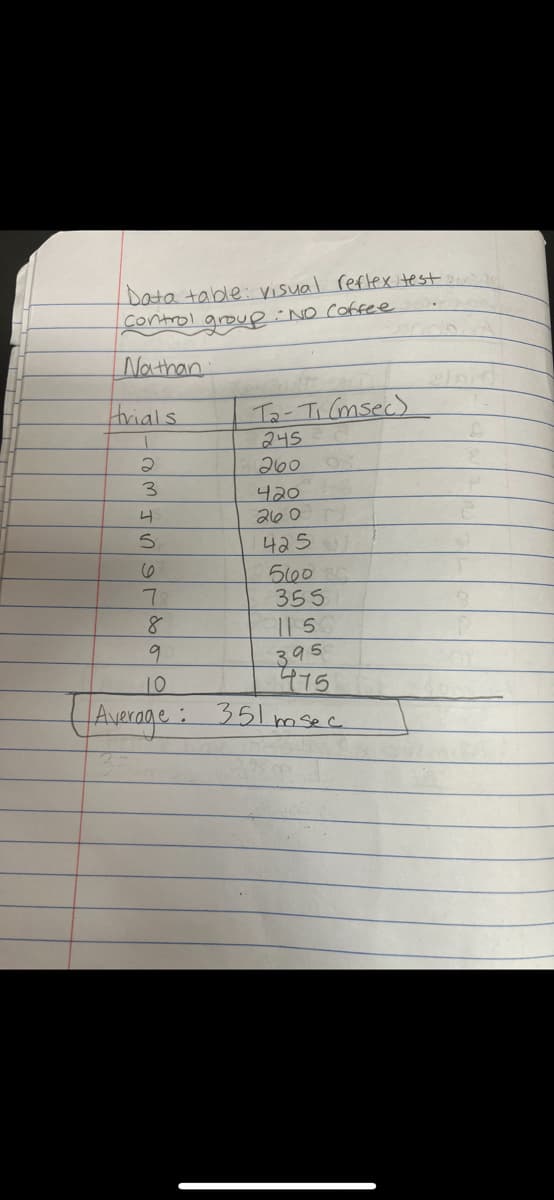 Data table: visual reflex test
control group: NO Coffee
Nathan:
trials T2-T1 (msec)
1 245
2 260
3 420
4 260
5 425
6 560
7 355
8 115
9 395
10 475
Average: 351 msec